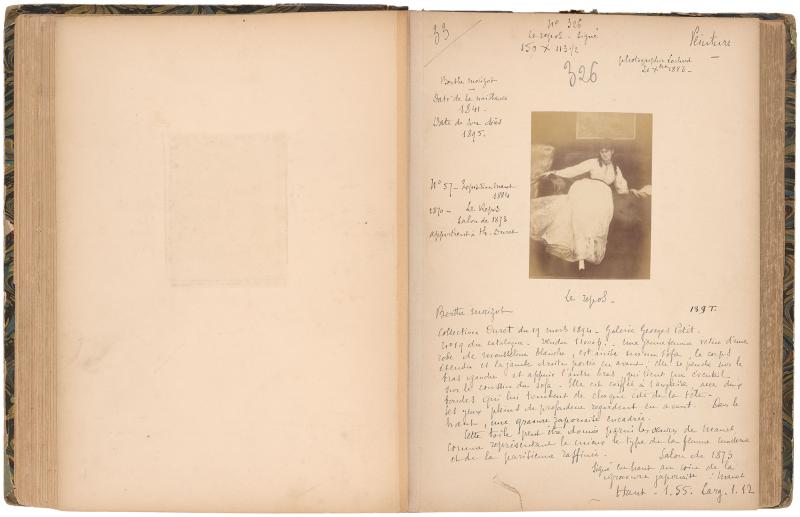 33
No 326
Le repos - Signé
150 x 113 1/2
326
Peinture
photographie Lochard
Xbre 1883 -
Berthe Morizot
Date de la naissance
1841 -
Date de son décès
1895 -
No 57 - Exposition Manet
1884
1870 - Le Repos
Salon de 1873
appartient à Th. Duret
Le repos -
Berthe Morizot
Collection Duret du 19 mars 1894 - Galerie Georges Petit.
No 19 du catalogue - Vendu - Une jeune femme vêtue d'une
robe de mousseline blanche, est assise sur un sofa, le corps
étendu et la jambe droite portée en avant; elle se penche sur le
bras gauche et appuie l'autre bras qui tient un éventail
sur le coussin du sofa - Elle est coiffée à l'anglaise, avec deux
boucles qui lui tombent de chaque côté de la tête.
Ses yeux pleins de profondeur regardent en avant. Dans le
haut, une gravure japonaise encadrée.
Cette toile peut être donnée parmi les œuvres de Manet
comme représentant le mieux le type de la femme moderne
et de la parisienne raffinée. Salon de 1873
Signé en haut au coin de la
gravure japonaise : Manet
Haut - 1.55. Larg. 1.12